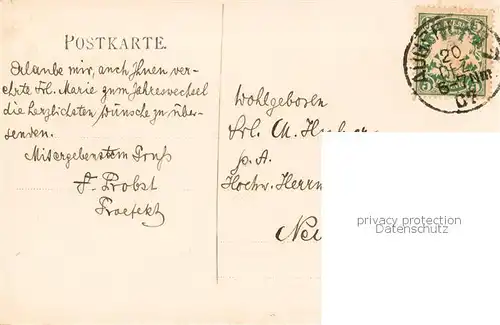 POSTKARTE.
Erlaube mir, auch Ihnen ver-
ehrte Frl. Marie zum Jahreswechsel
die herzlichsten Wünsche zu über-
senden.
Mit ergebenstem Gruß
F. Probst
Praefekt
Wohlgeboren
Frl. M. Huber
p. A.
Hochw. Herrn
Neu
AUGSBURG
20
DEZ
07
privacy protection
Datenschutz